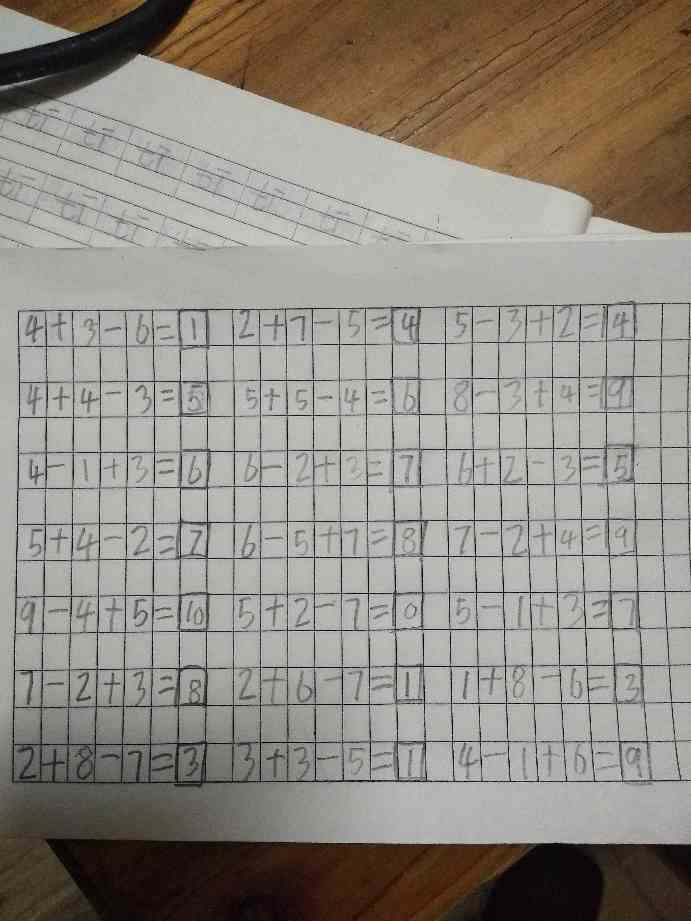 4+3-6=1 2+7-5=4 5-3+2=4
4+4-3=5 5+5-4=6 8-3+4=9
4-1+3=6 6-2+3=7 6+2-3=5
5+4-2=7 6-5+7=8 7-2+4=9
9-4+5=10 5+2-7=0 5-1+3=7
7-2+3=8 2+6-7=1 1+8-6=3
2+8-7=3 3+3-5=1 4-1+6=9